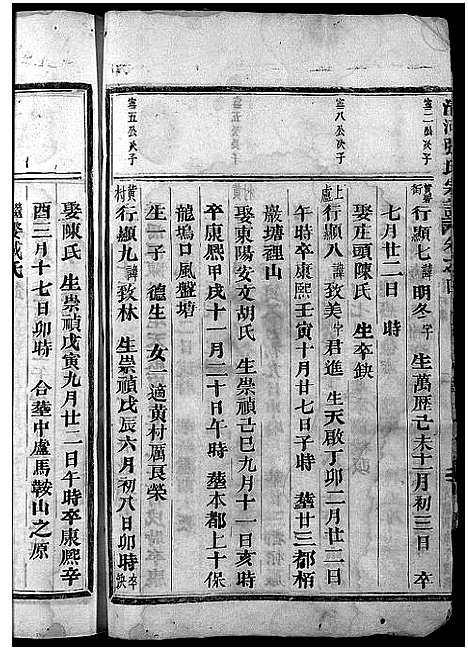 清河張氏宗譜
富二公次子
黃幕街
行顯七 諱明冬 字 生萬歷己未十一月初三日 卒
七月廿二日 時
娶庄頭陳氏 生卒缺
富八公次子
上盧
行顯八 諱致美 字君進 生天啟丁卯二月廿二日
午時卒康熙壬寅十月廿七日子時 塟廿三都栢
巖塘裡山
娶東陽安文胡氏 生崇禎己巳九月十一日亥時
卒康熙甲戌十一月二十日午時 塟本都上十保
龍塢口風盤塘
生一子 德生 女一適黃村厲良榮
富五公次子
黃村
行顯九 諱致林 生崇禎戊辰六月初八日卯時 卒缺
娶陳氏 生崇禎戊寅九月廿二日午時卒康熙辛
酉三月十七日卯時 合塟中盧馬鞍山之原
繼娶戚氏